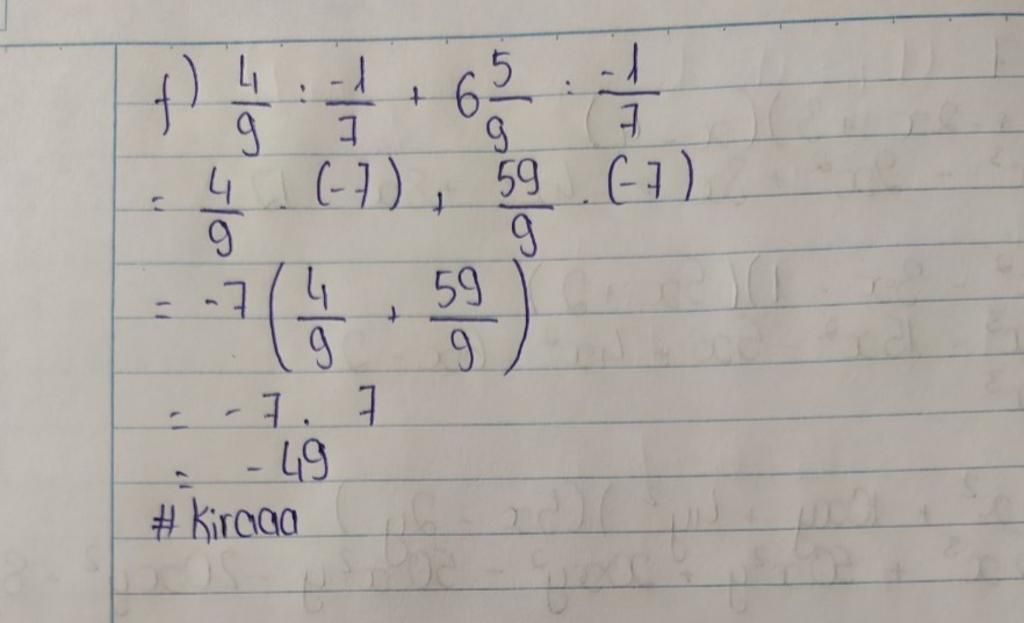 f) 4/9 : -1/7 + 6 5/9 : -1/7
= 4/9 . (-7) + 59/9 . (-7)
= -7 (4/9 + 59/9)
= -7 . 7
= -49
# Kiraaa